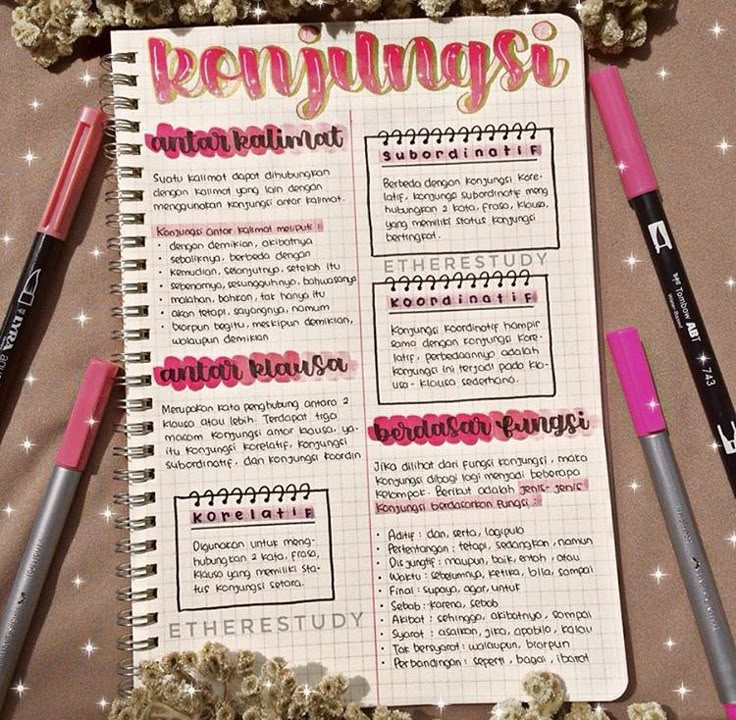 konjungsi
antar kalimat
Suatu kalimat dapat dihubungkan
dengan kalimat yang lain dengan
menggunakan konjungsi antar kalimat.
Konjungsi antar kalimat meliputi :
• dengan demikian, akibatnya
• sebaliknya, berbeda dengan
• kemudian, selanjutnya, setelah itu
• sebenarnya, sesungguhnya, bahwasanya
• malahan, bahkan, tak hanya itu
• akan tetapi, sayangnya, namun
• biarpun begitu, meskipun demikian,
walaupun demikian
antar klausa
Merupakan kata penghubung antara 2
klausa atau lebih. Terdapat tiga
macam konjungsi antar klausa, ya-
itu konjungsi korelatif, konjungsi
subordinatif, dan konjungsi koordin
Korelatif
Digunakan untuk meng-
hubungkan 2 kata, frasa,
klausa yang memiliki sta-
tus konjungsi setara.
ETHERESTUDY
Subordinatif
Berbeda dengan konjungsi kore-
latif, konjungsi subordinatif meng
hubungkan 2 kata, frasa, klausa,
yang memiliki status konjungsi
bertingkat.
ETHERESTUDY
Koordinatif
Konjungsi koordinatif hampir
sama dengan konjungsi kore-
latif, perbedaannya adalah
konjungsi ini terjadi pada kla-
usa-klausa sederhana.
berdasar fungsi
Jika dilihat dari fungsi konjungsi, maka
konjungsi dibagi lagi menjadi beberapa
kelompok. Berikut adalah jenis-jenis
konjungsi berdasarkan fungsi :
• Aditif : dan, serta, lagipula
• Pertentangan : tetapi, sedangkan, namun
• Disjungtif : maupun, baik, entah, atau
• Waktu : sebelumnya, ketika, bila, sampai
• Final : supaya, agar, untuk
• Sebab : karena, sebab
• Akibat : sehingga, akibatnya, sampai
• Syarat : asalkan, jika, apabila, kalau
• Tak bersyarat : walaupun, biarpun
• Perbandingan : seperti, bagai, ibarat
LYRA
Tombow ABT
743